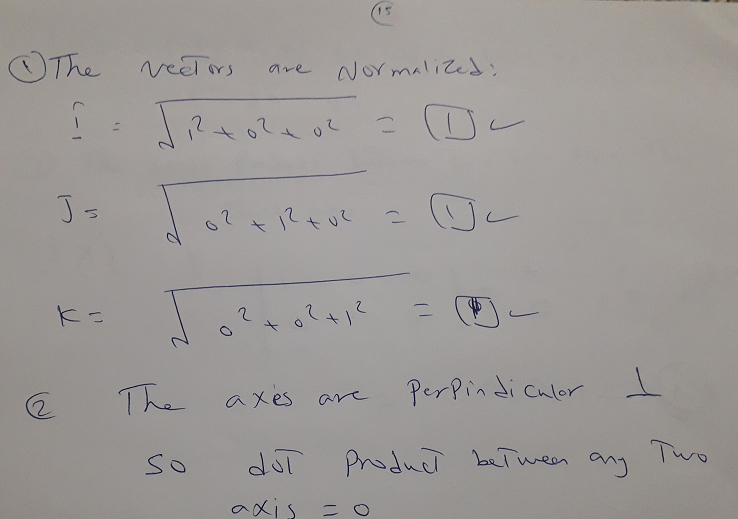 15
① The vectors are Normalized:
î = √1² + 0² + 0² = 1 ✓
J = √0² + 1² + 0² = 1 ✓
K = √0² + 0² + 1² = 1 ✓
② The axes are Perpindicular ⊥
so dot product between any Two
axis = 0